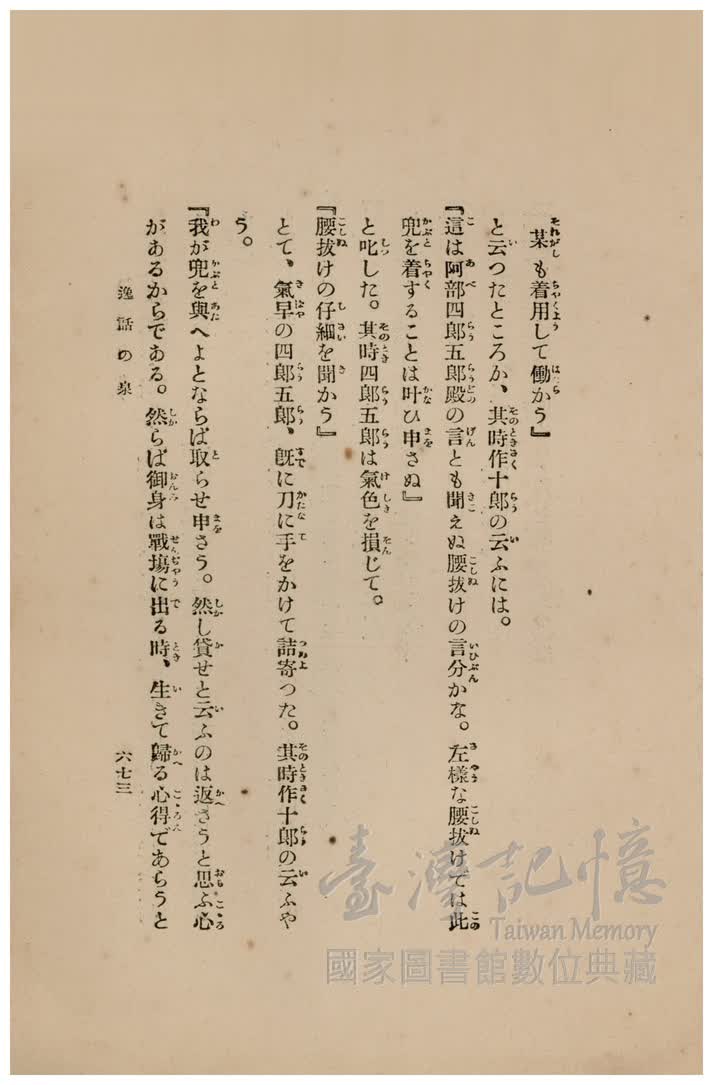 某も着用して働かう』
と云つたところが、其時作十郎の云ふには。
『這は阿部四郎五郎殿の言とも聞えぬ腰抜けの言分かな。左樣な腰抜けでは此
兜を着することは叶ひ申さぬ』
と叱した。其時四郎五郎は氣色を損じて。
『腰抜けの仔細を聞かう』
とて、氣早の四郎五郎、旣に刀に手をかけて詰寄つた。其時作十郎の云ふや
う。
『我が兜を與へよとならば取らせ申さう。然し貸せと云ふのは返さうと思ふ心
があるからである。然らば御身は戰場に出る時、生きて歸る心得であらうと
逸話の泉
六七三
臺灣記憶
Taiwan Memory
國家圖書館數位典藏